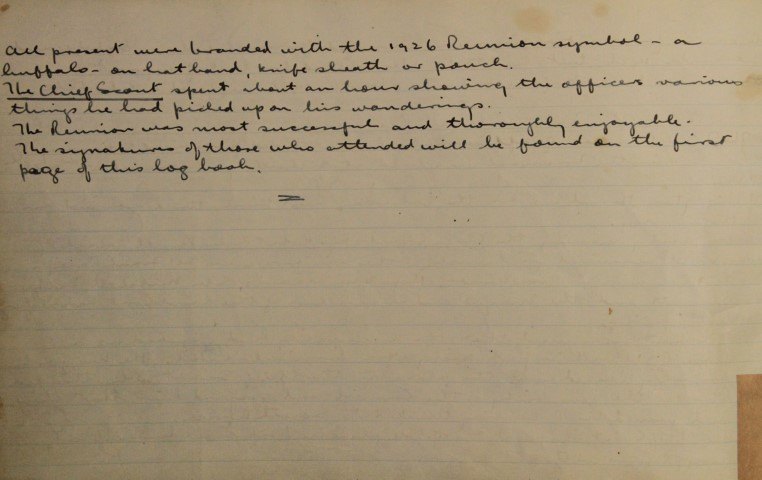 All present were branded with the 1926 Reunion symbol - a
buffalo - on hat band, knife sheath or pouch.
The Chief Scout spent about an hour showing the officers various
things he had picked up on his wanderings.
The Reunion was most successful and thoroughly enjoyable.
The signatures of those who attended will be found on the first
page of this log book.